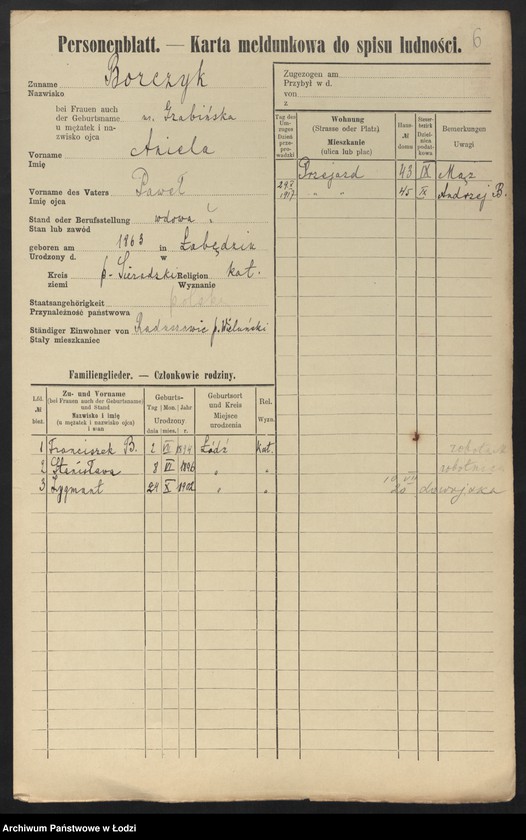 Personenblatt. — Karta meldunkowa do spisu ludności. 6
Zuname
Nazwisko
Borczyk
bei Frauen auch
der Geburtsname
u mężatek i na-
zwisko ojca
Grabińska
Vorname
Imię
Aniela
Vorname des Vaters
Imię ojca
Paweł
Stand oder Berufsstellung
Stan lub zawód
wdowa
geboren am 1863 in Łabędzin
Urodzony d. w
Kreis
ziemi
p. Sieradzki
Religion
Wyznanie
kat.
Staatsangehörigkeit
Przynależność państwowa
polska
Ständiger Einwohner von
Stały mieszkaniec
p. Wieluński
Zugezogen am
Przybył w d.
von
z
Tag des
Um-
zuges
Dzień
prze-
prowadzki
Wohnung
(Strasse oder Platz)
Mieszkanie
(ulica lub plac)
Haus-
№
domu
Steuer-
bezirk
Dziel-
nica
podat-
kowa
Bemerkungen
Uwagi
Przejazd 43 IX Mąż
1917 " " 45 IX Andrzej B.
Familienglieder. — Członkowie rodziny.
Lfd.
№
bież.
Zu- und Vorname
(bei Frauen auch der Geburtsname)
und Stand
Nazwisko i imię
(u mężatek i nazwisko ojca)
i stan
Geburts-
Tag | Mon. | Jahr
Urodzony
dnia | mies. | r.
Geburtsort
und Kreis
Miejsce
urodzenia
Rel.
Wyzn.
1 Franciszek B. 2 VII 1894 Łódź Kat. robotnik
2 Stanisława 8 VI 1896 " " robotnica
3 Zygmunt 24 X 1902 " "
Archiwum Państwowe w Łodzi